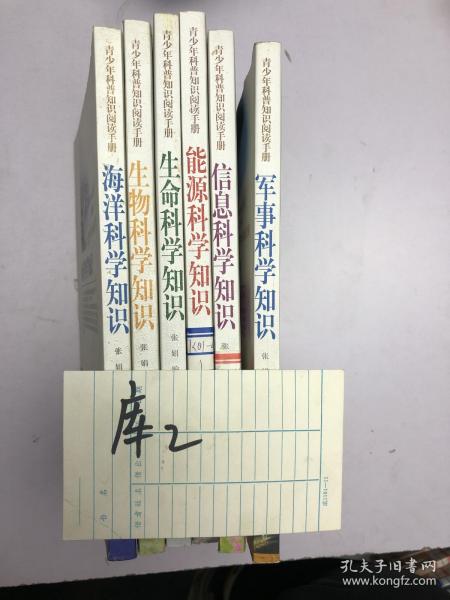 青少年科普知识阅读手册
海洋科学知识
张娟
青少年科普知识阅读手册
生物科学知识
张娟
青少年科普知识阅读手册
生命科学知识
张娟
青少年科普知识阅读手册
能源科学知识
青少年科普知识阅读手册
信息科学知识
张
青少年科普知识阅读手册
军事科学知识
张
库2
书名
孔夫子旧书网
www.kongfz.com